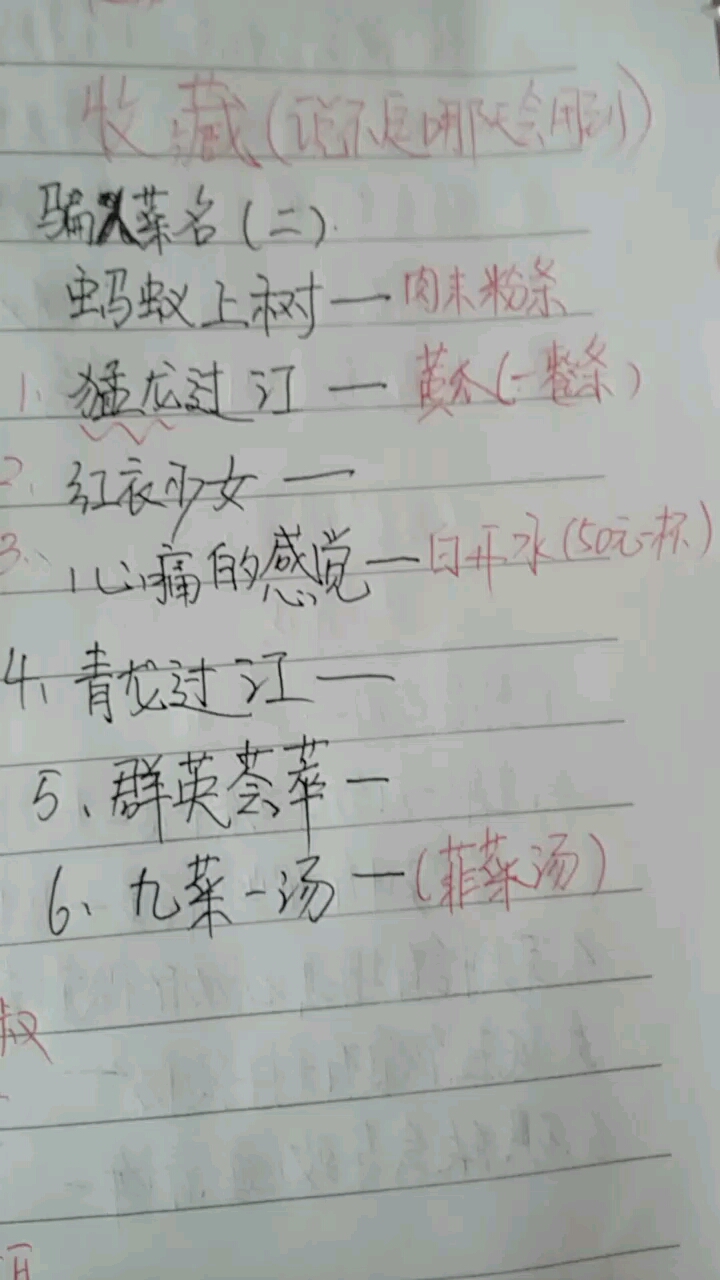 收藏(说不定哪天会用到)
骗人菜名(二)
蚂蚁上树—肉末粉条
1、猛龙过江—黄瓜(一整条)
2、红衣少女—
3、心痛的感觉—白开水(50元一杯)
4、青龙过江—
5、群英荟萃—
6、九菜一汤—(韭菜汤)
叔